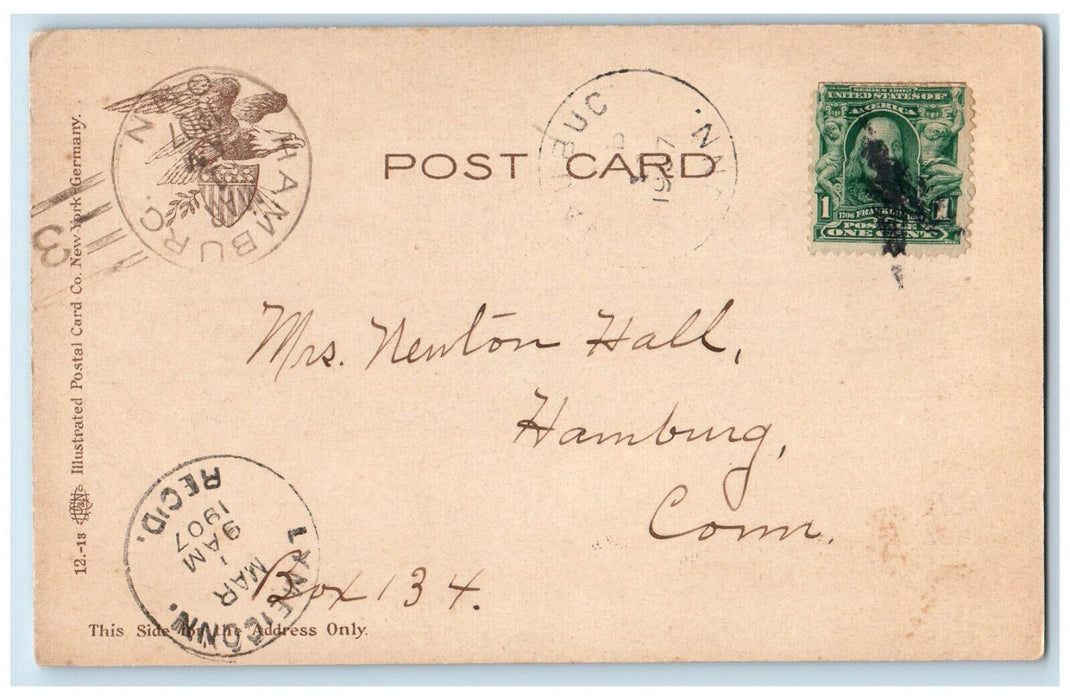 POST CARD
SERIES 1902
UNITED STATES OF
AMERICA
1 1706 FRANKLIN 1
POSTAGE
ONE CENT
HAMBURG
Mrs. Newton Hall,
Hamburg,
Conn.
Box 134.
REC'D.
1907
9 AM
MAR
LYME CONN.
3
12.-13
Illustrated Postal Card Co. New-York-Germany.
This Side for the Address Only.